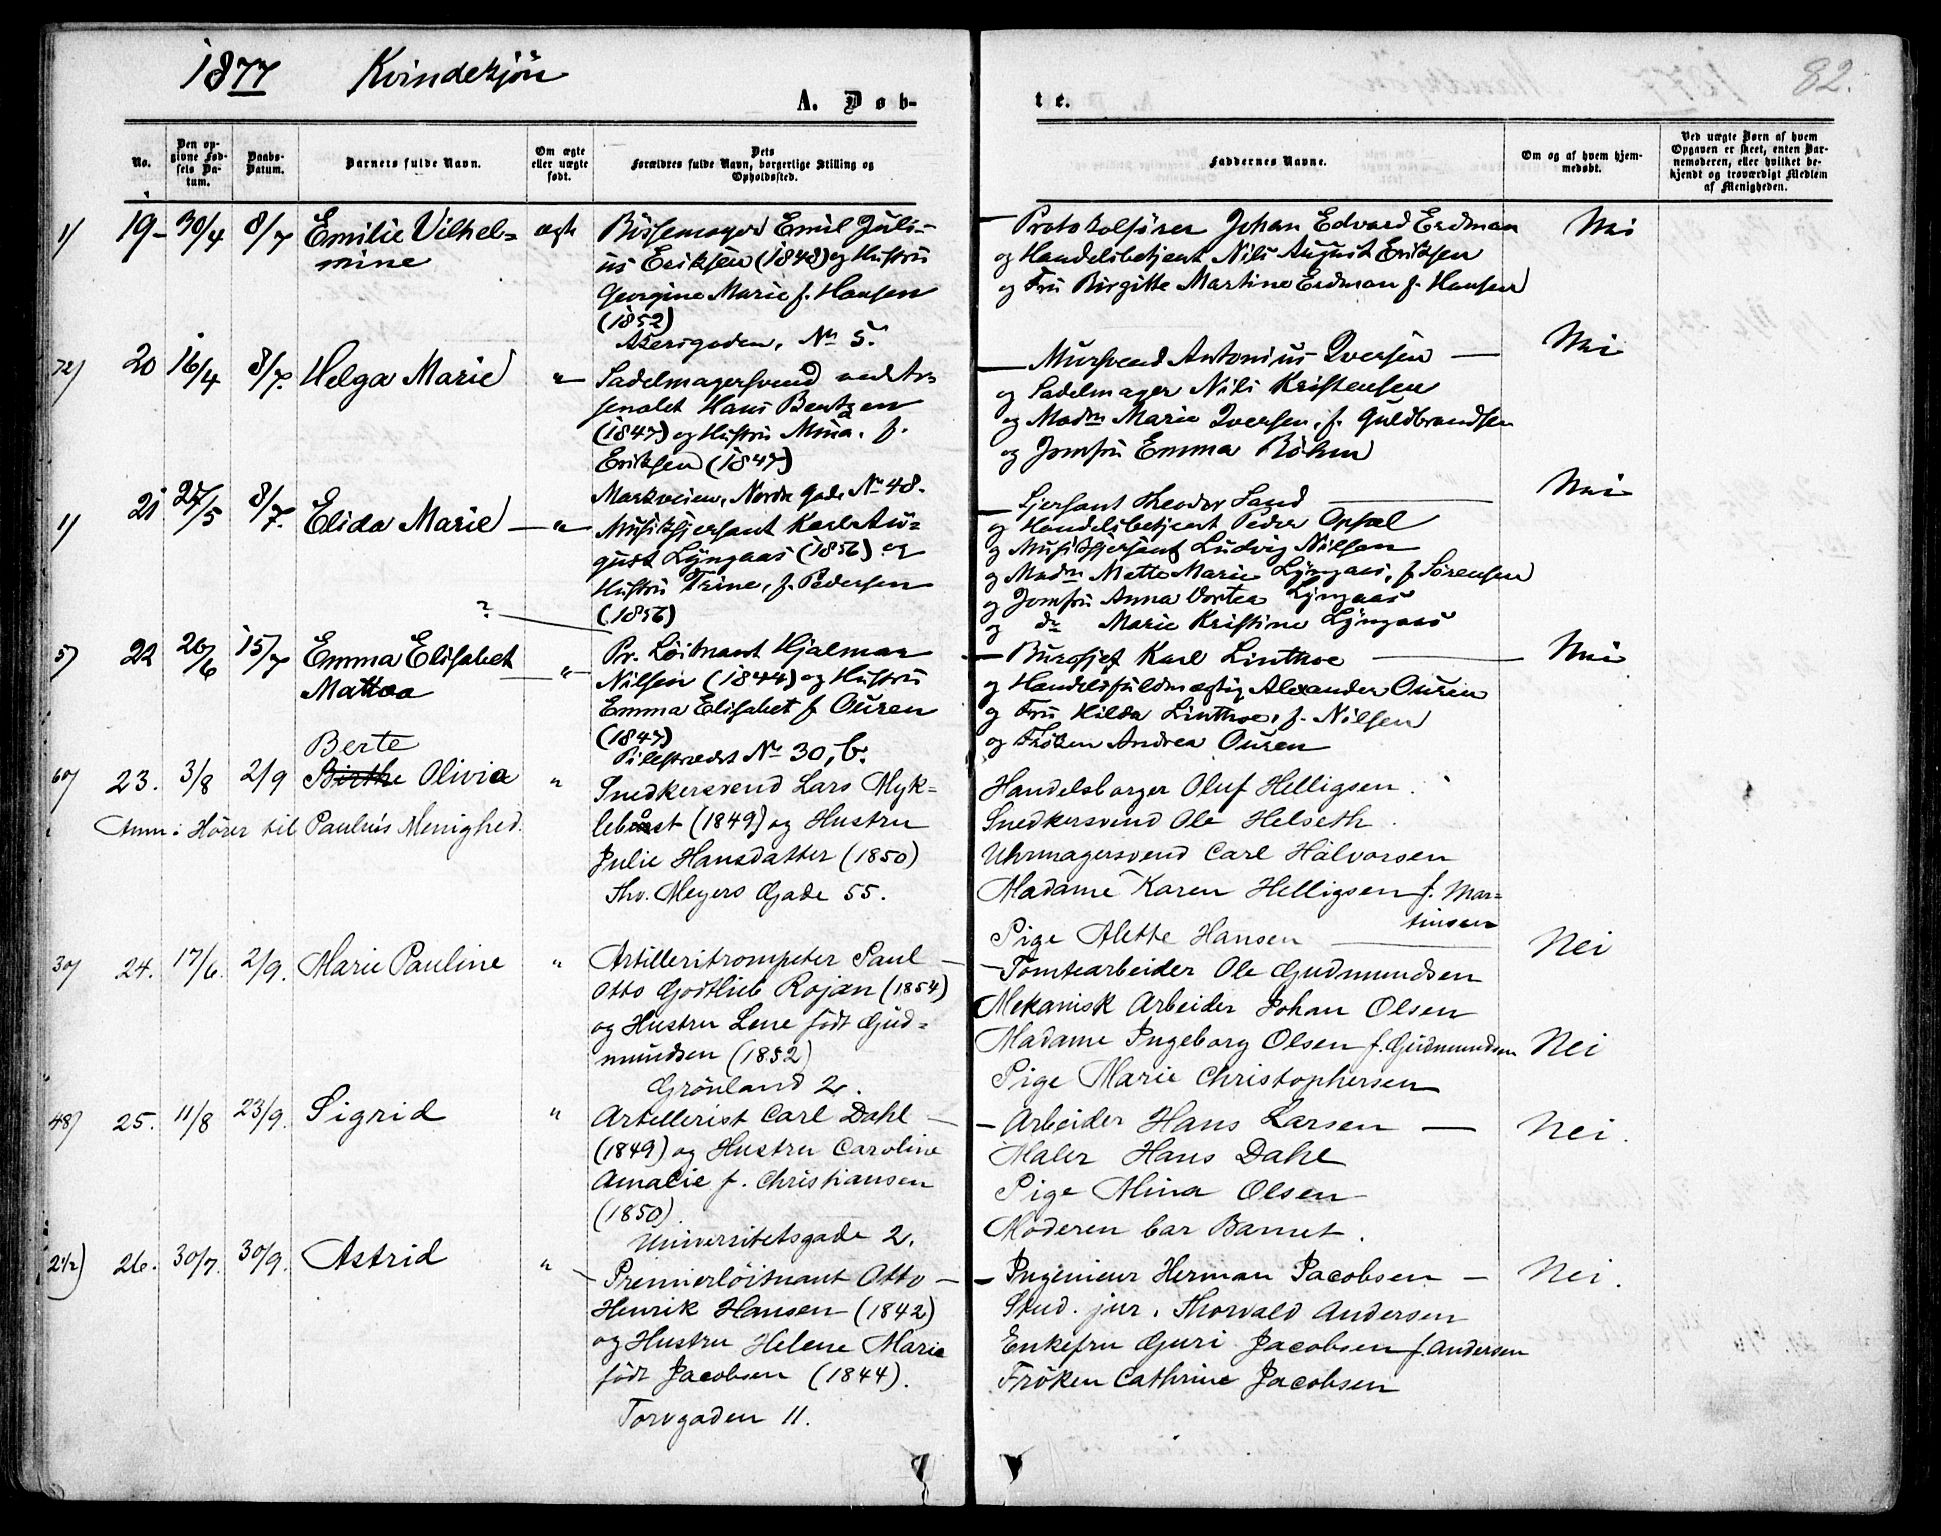 1877 Kvindekjön
82.
A. Døb-
te.
No.
Den op-
givne Fød-
sels Da-
tum.
Daabs-
Datum.
Barnets fulde Navn.
Om ægte
eller uægte
født.
Dets
Forældres fulde Navn, borgerlige Stilling og
Opholdssted.
Faddernes Navne.
Om og af hvem hjem-
medøbt.
Ved uægte Børn af hvem
Opgaven er skeet, enten Bar-
nemoderen, eller hvilket be-
kjendt og troværdigt Medlem
af Menigheden.
1) 19- 30/4 8/7 Emilie Vilhel=
mine
ægte
Bössemager Emil Juli-
us Eriksen (1848) og Hustru
Georgine Marie f. Hansen
(1852)
Akersgaden, No 5.
— Protokolförer Johan Edvard Erdman
og Handelsbetjent Nils August Eriksen
og Fru Birgitte Martine Erdman f. Hansen
Nei
72) 20 16/4 8/7. Helga Marie "
Sadelmagersvend ved Ar-
senalet Hans Bentzen
(1847) og Hustru Mina. f.
Eriksen (1847)
Markveien, Nordre Gade No 48.
— Mursvend Antonius Iversen —
og Sadelmager Nils Kristensen
og Madm Marie Iversen, f. Guldbrandsen
og Jomfru Emma Böhm
Nei
1) 21 27/5 8/7. Elida Marie — "
Musikserjant Karl Au=
gust Lyngaas (1856) og
Hustru Trine, f. Pedersen
(1856)
— Sjersant Theodor Sand —
og Handelsbetjent Peder Opsal
og Musiksjersant Ludvig Nilsen
og Madm Mette Marie Lyngaas, f. Sørensen
og Jomfru Anna Dortea Lyngaas
og do Marie Kristine Lyngaas
Nei
?
5) 22 26/6 15/7 Emma Elisabet
Mattea
"
Pr. Löitnant Hjalmar
Nilsen (1844) og Hustru
Emma Elisabet f. Ouren
(1847)
Pilestrædet No 30, b.
— Burchef Karl Linthoe —
og Handelsfuldmægtig Alexander Ouren
og Fru Hilda Linthoe, f. Nilsen
og Fröken Andrea Ouren
Nei
60) 23. 3/8 2/9 Berte
Birthe Olivia "
Anm: Hører til Paulus Menighed.
Snedkersvend Lars Myk=
lebust (1849) og Hustru
Julie Hansdatter (1850)
Thv. Meyers Gade 55.
Handelsborger Oluf Helligsen.
Snedkersvend Ole Helseth.
Uhrmagersvend Carl Halvorsen
Madame Karen Helligsen f. Mar=
tinsen
Pige Alette Hansen —
Nei
30) 24. 17/6. 2/9. Marie Pauline "
Artilleritrompeter Paul —
Otto Godtlieb Rojan (1854)
og Hustru Lene födt Gud=
mundsen (1852)
Grönland 2.
— Tomtearbeider Ole Gudmundsen
Mekanisk Arbeider Johan Olsen
Madame Ingeborg Olsen f. Gudmundsen
Pige Marie Christophersen
Nei
48) 25. 11/8 23/9. Sigrid "
Artillerist Carl Dahl —
(1849) og Hustru Caroline
Amalie f. Christiansen
(1850).
Universitetsgade 2.
— Arbeider Hans Larsen —
Maler Hans Dahl
Pige Mina Olsen
Moderen bar Barnet.
Nei.
2 1/2) 26. 30/7. 30/9. Astrid "
— Premierlöitnant Otto —
Henrik Hansen (1842)
og Hustru Helene Marie
födt Jacobsen (1844).
Torvgaden 11.
— Ingenieur Herman Jacobsen —
Stud. jur. Thorvald Andersen
Enkefru Guri Jacobsen f. Andersen
Fröken Cathrine Jacobsen
Nei.